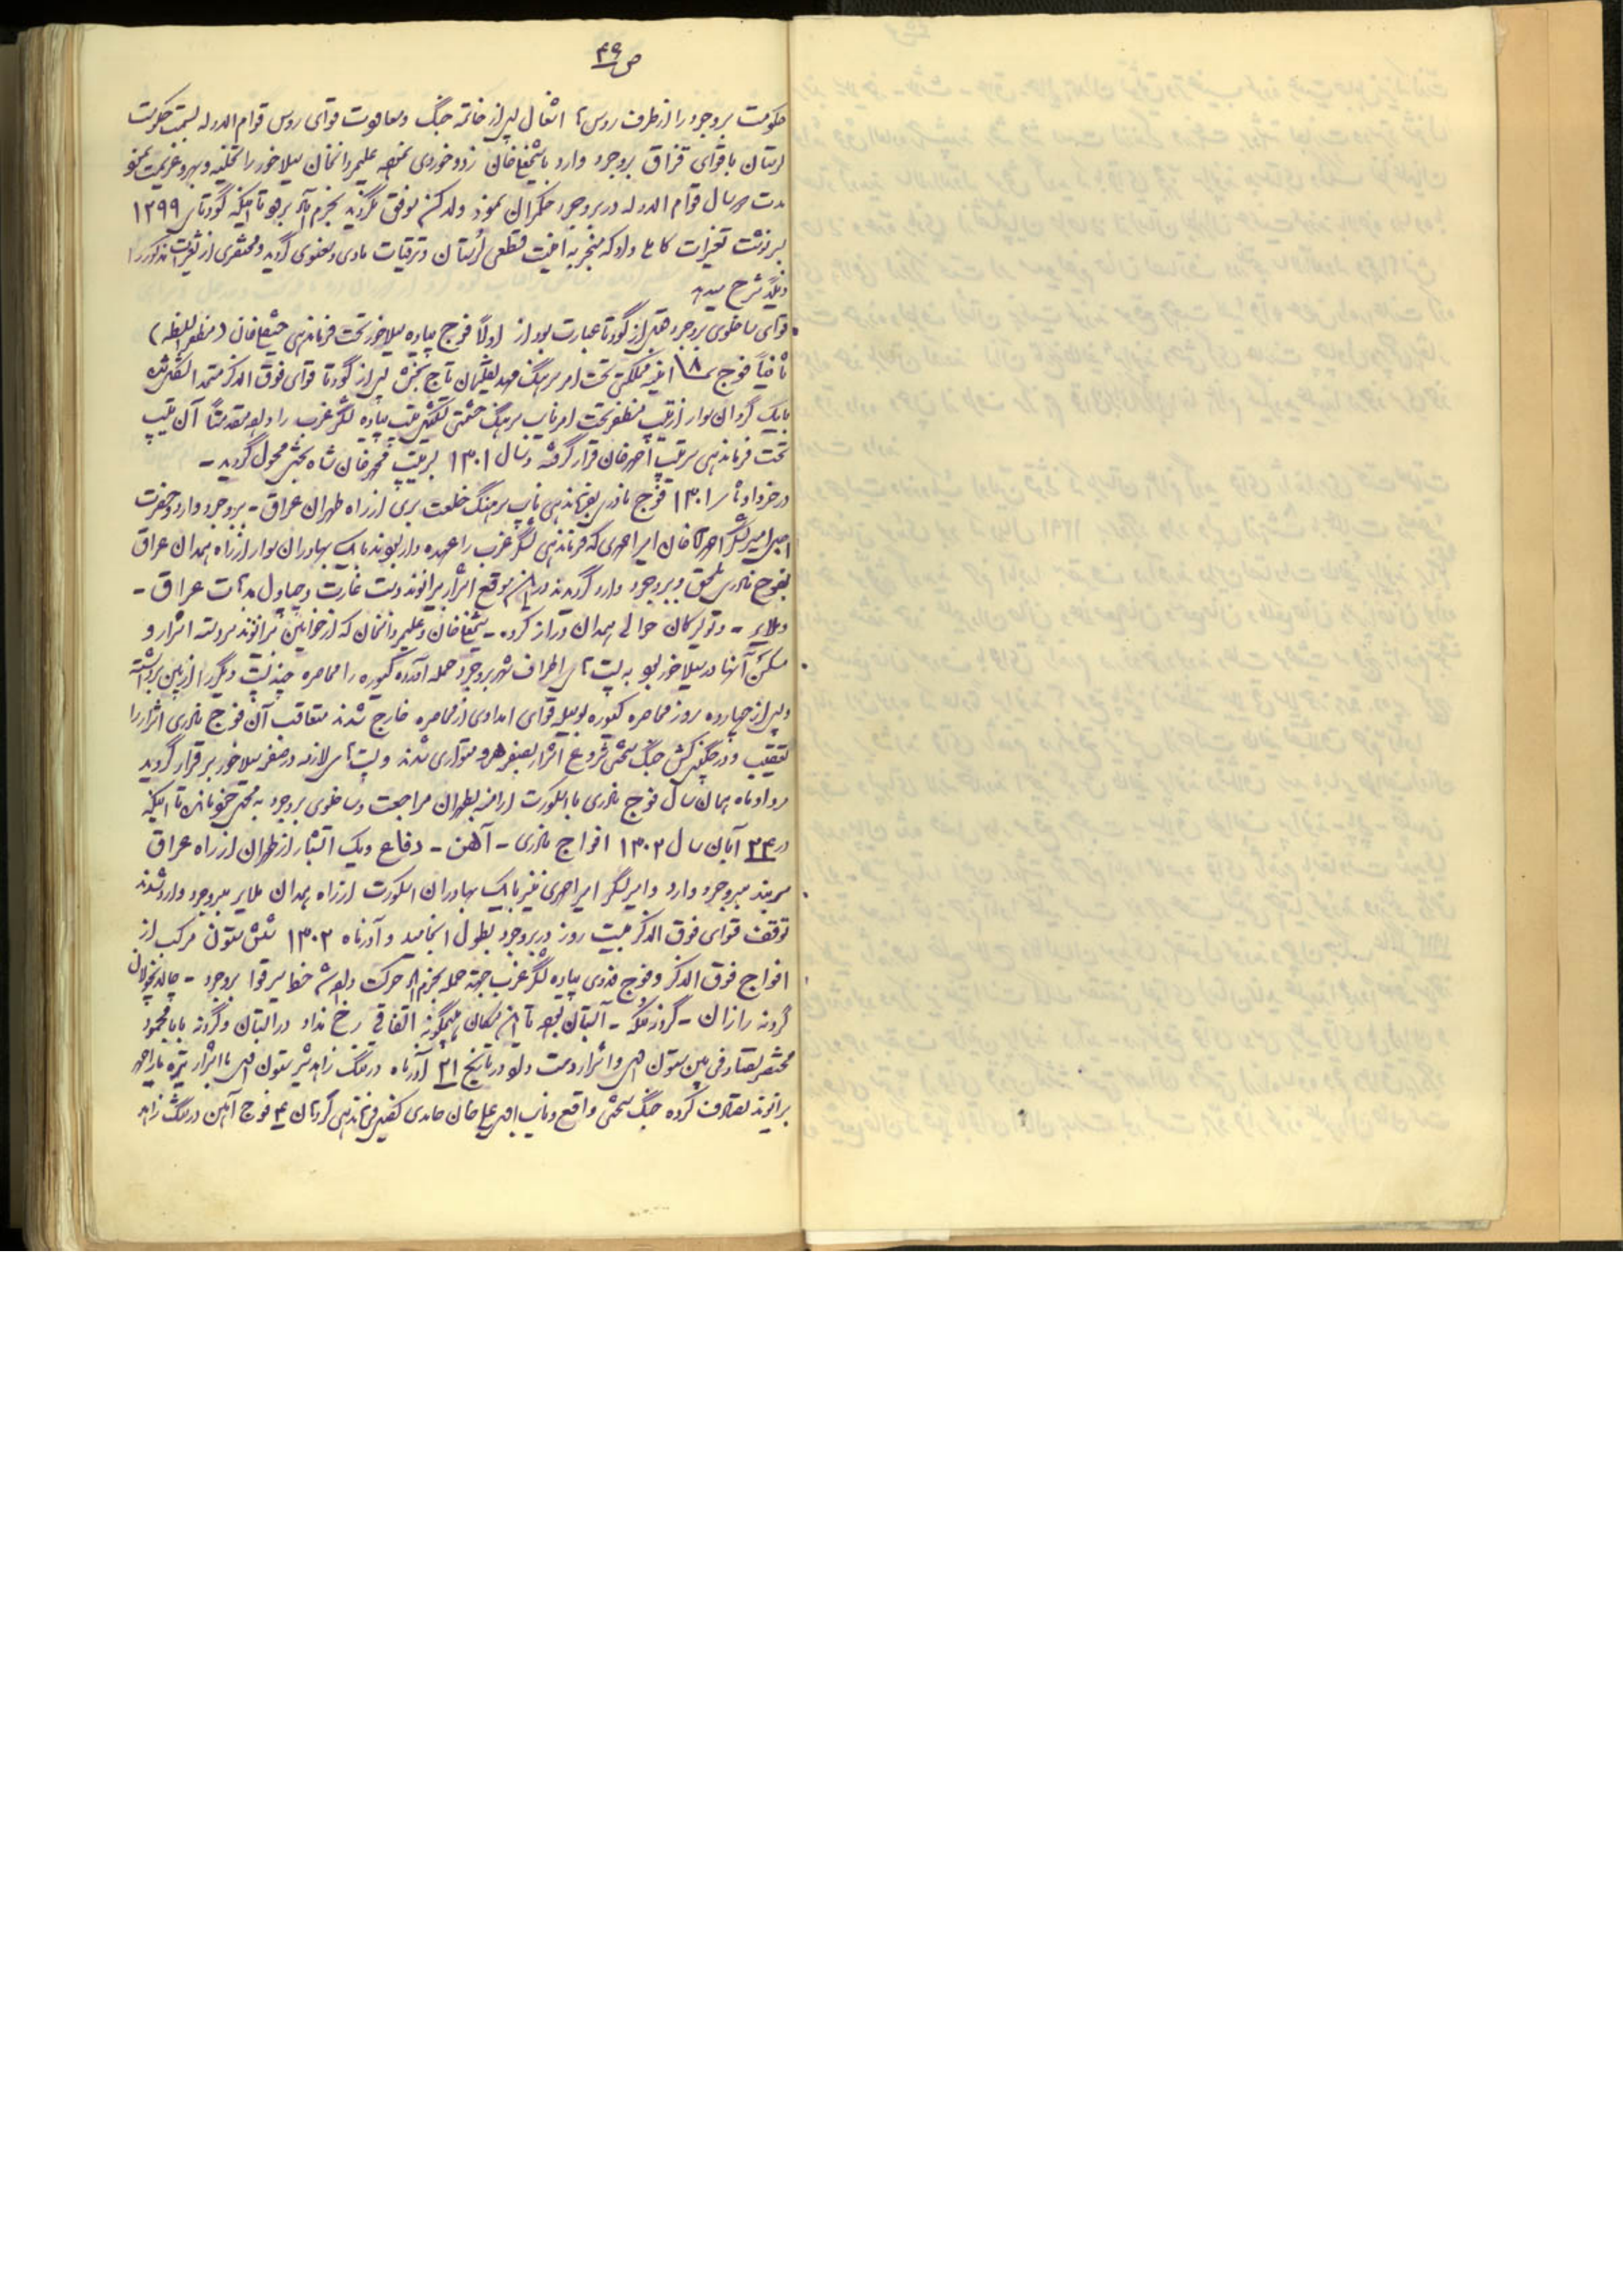 ص ۴۹
حکومت بروجرد را از طرف روس‌ها اشغال پس از خاتمه جنگ و معاودت قوای روس قوام الدوله بسمت حکومت
لرستان با قوای قزاق بروجرد وارد با شیخعلیخان زد و خوردی نموده علیمردانخان سیلاخور را تخلیه و
مدت سال قوام الدوله در بروجرد حکمرانی نمود ولی موفق نگردید بخرم آباد برود تا اینکه کودتای ۱۲۹۹
سرنوشت تغییرات کاملی داد که منجر به امنیت قطعی لرستان و ترقیات مادی و معنوی گردید و مختصری از تغییرات مذکور را
ذیلاً شرح میدهد
قوای ساخلوی بروجرد قبل از کودتا عبارت بود از اولاً فوج پیاده سیلاخور تحت فرماندهی شیخعلیخان
ثانیاً فوج ۱۸ امنیه مملکتی تحت امر سرهنگ مهدیقلیخان تاج بخش پس از کودتا قوای فوق الذکر متحد الشکل شده
با یک گردان سوار از تیپ منظفر تحت امر نایب سرهنگ حشمتی تشکیل تیپ پیاده لشگر غرب را داده مقدمتاً آن تیپ
تحت فرماندهی سرتیپ احمدخان قرار گرفته و سال ۱۳۰۱ بسرتیپ محمدخان شاه بختی محول گردید -
در خرداد ماه ۱۳۰۱ فوج نادری بفرماندهی نایب سرهنگ خلعت بری از راه طهران عراق - بروجرد وارد و حضرت
اجل امیر لشگر احمد آقا خان امیر احمدی که فرماندهی لشگر غرب را عهده دار بودند با یک بهادران سوار از راه همدان عراق
بفوج نادری ملحق و ببروجرد وارد گردیدند در این موقع اشرار بیرانوند دست غارت و چپاول بدهات عراق -
و ملایر - و تویسرکان حوالی همدان دراز کرده - شیخعلیخان و علیمردانخان که از خوانین بیرانوند سردسته اشرار و
مسکن آنها در سیلاخور بود به پست های اطراف شهر بروجرد حمله آورده کیوره را محاصره چند پست دیگر را از بین برداشته
و پس از چهارده روز محاصره کیوره بوسیله قوای امدادی از محاصره خارج شدند متعاقب آن فوج نادری اشرار را
تعقیب و در جنگ سختی شروع اشرار متواری شدند و پست های لازمه در سیلاخور برقرار گردید
مرداد ماه همان سال فوج نادری با اسکورت بطهران مراجعت و ساخلوی بروجرد تا اینکه
در ۲۴ آبان سال ۱۳۰۲ افواج نادری - آهن - دفاع و یک آتشبار از طهران از راه عراق
ببروجرد وارد و امیر لشگر امیر احمدی نیز با یک بهادران اسکورت از راه همدان ملایر ببروجرد وارد شدند
توقف قوای فوق الذکر بیست روز در بروجرد بطول انجامید و آذرماه ۱۳۰۲ شش ستون مرکب از
افواج فوق الذکر و فوج پیاده لشگر غرب جهة حمله بخرم آباد حرکت داده شد خط سیر قوا بروجرد - چالانچولان
گردنه رازان - - آبستان بود تا این مکان هیچگونه اتفاقی رخ نداد در آبستان و گردنه بابا محمود
مختصر تصادفی بین ستون و اشرار دست داد و در تاریخ ۲۱ آذرماه در تنگ زاهدشیر ستون با اشرار تیره یاراحمد
بیرانوند تصادف کرده جنگ سختی واقع و نایب علی خان حامدی کفیل فرماندهی گردان ۴ فوج آهن در تنگ زاهد